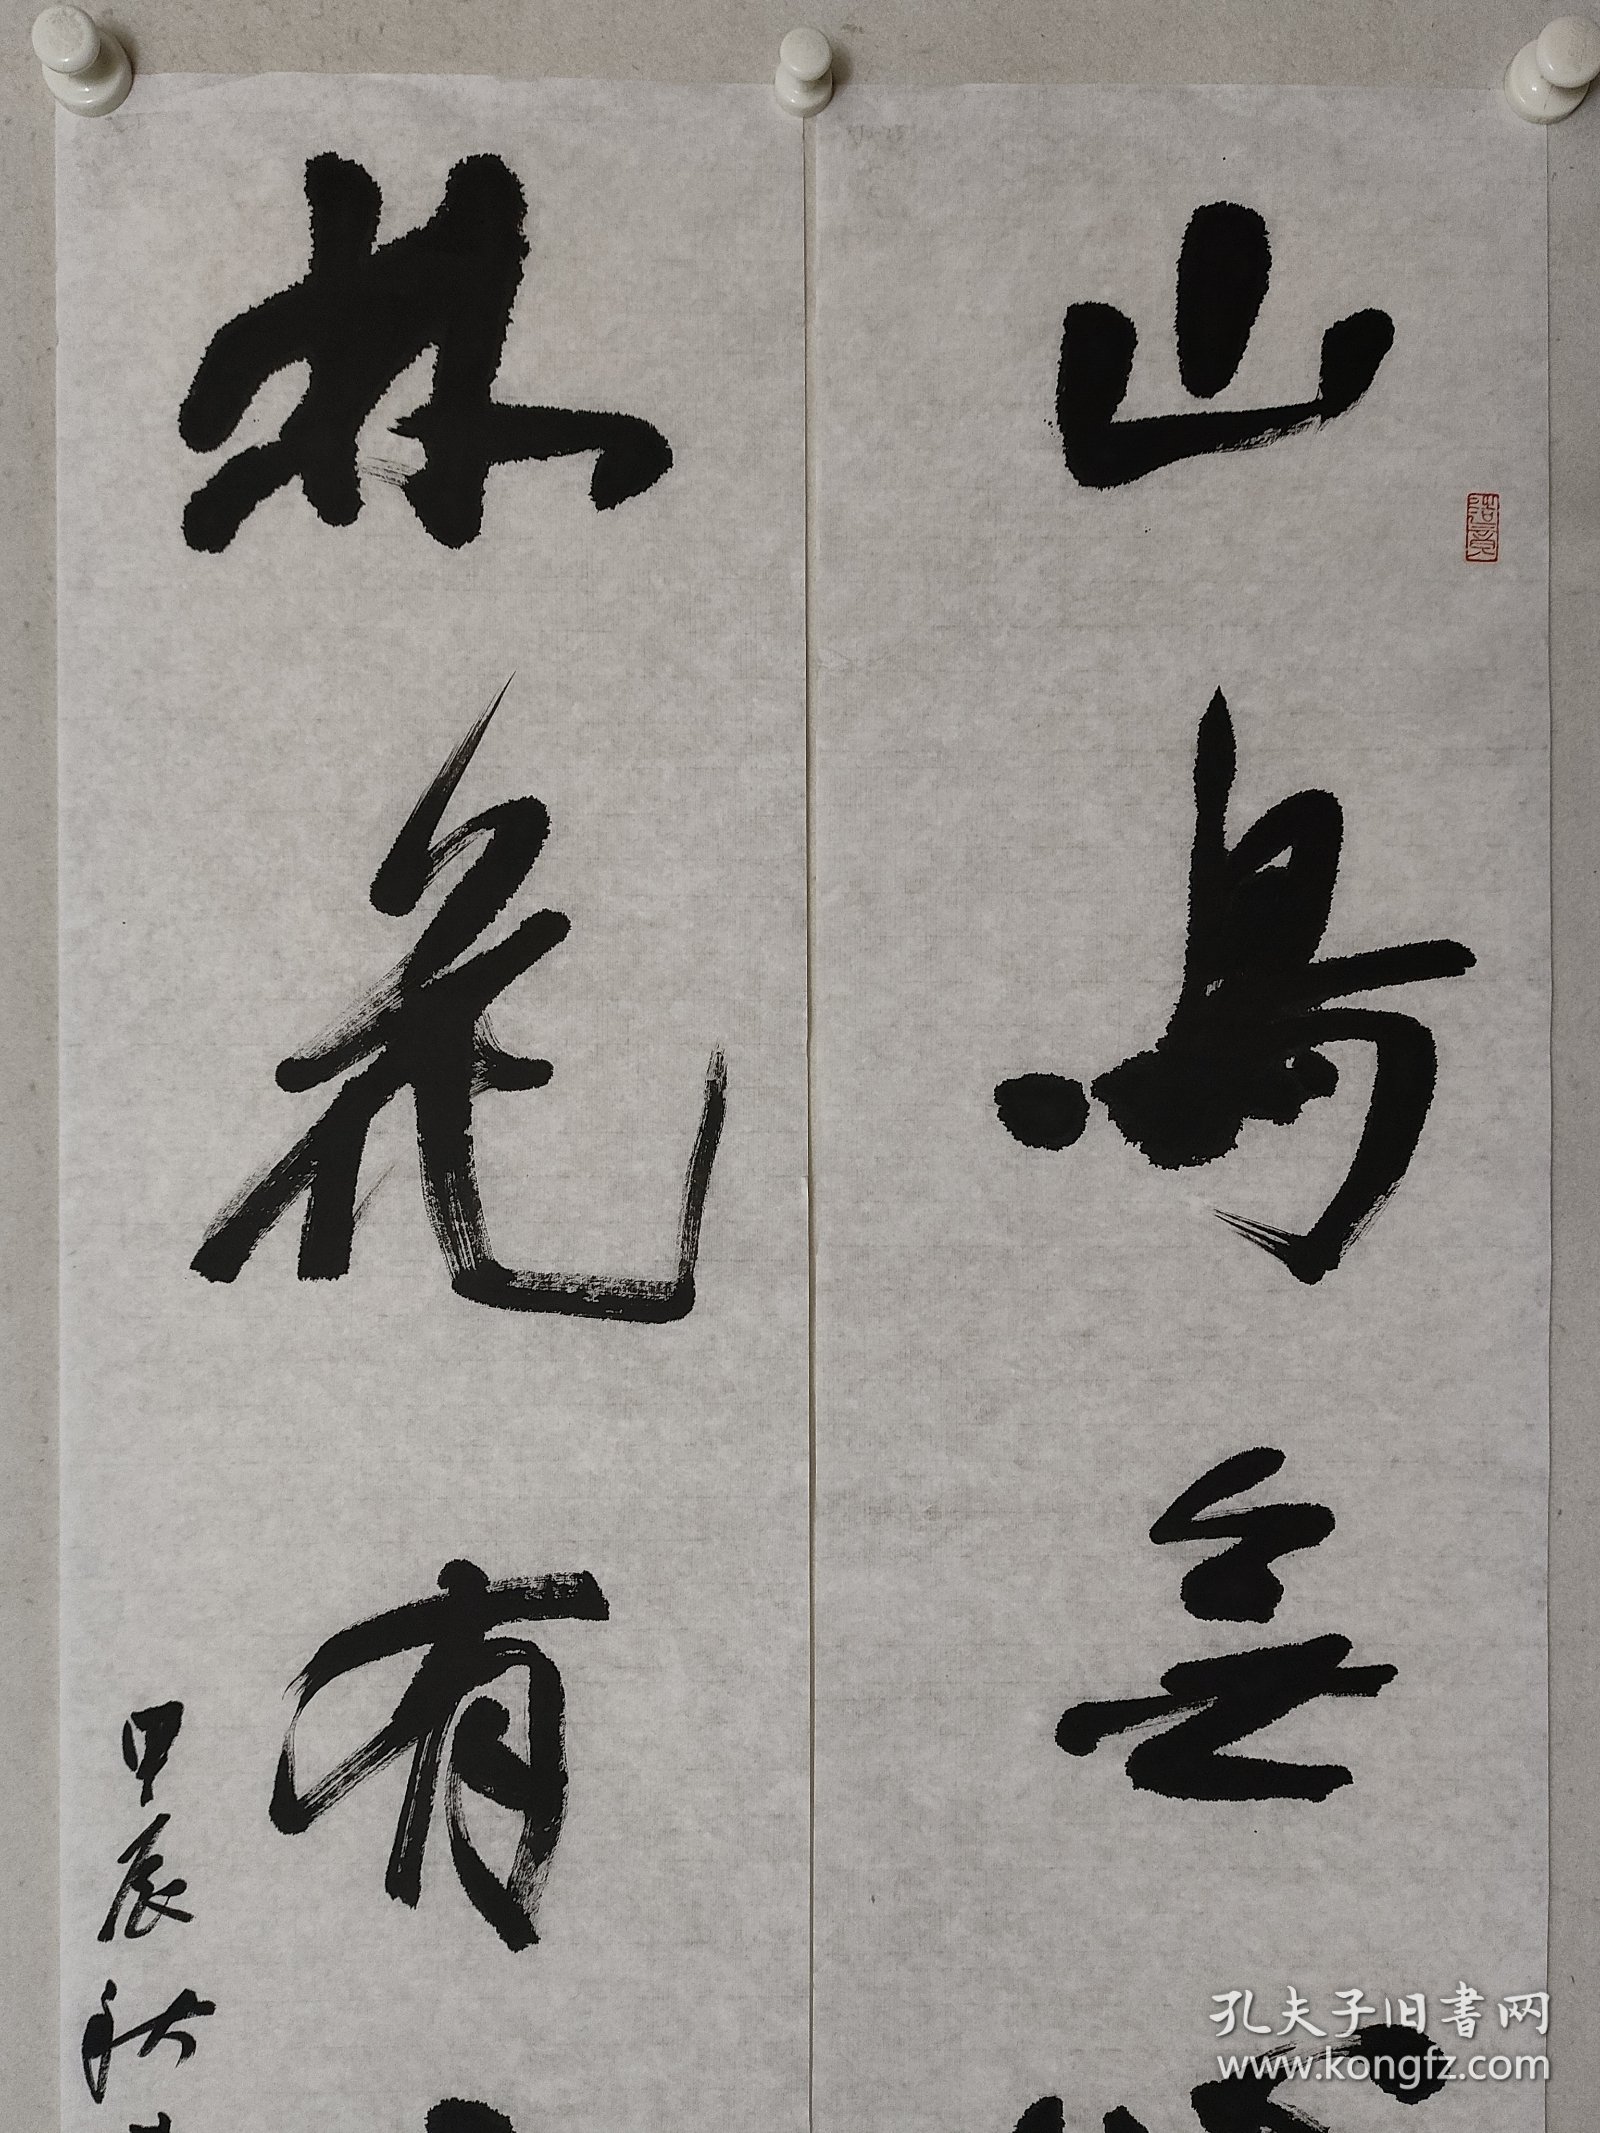 山鸟无
林花有
甲辰秋
孔夫子旧书网
www.kongfz.com